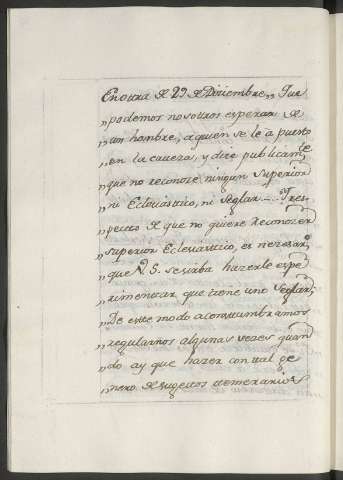 En otra de 29 de Diziembre,, Que
,,podemos nosotros esperar de
,,un hombre, aquien se le á puesto
,,en la caveza, y dize publicamte
,,que no reconoze ningun Superior
,,ni Eclesiastico, ni Seglar... Y res-
,,pecto de que no quiere reconozer
,,superior Eclesiastico, es nezesaro
,,que V. S. se sirba hazerle espe
,,rimentar que tiene uno Seglar;
,,De este modo acostumbramos
,,reglarnos algunas vezes quan
,,do ay que hazer con tal ge
,,nero de sugetos temerarios